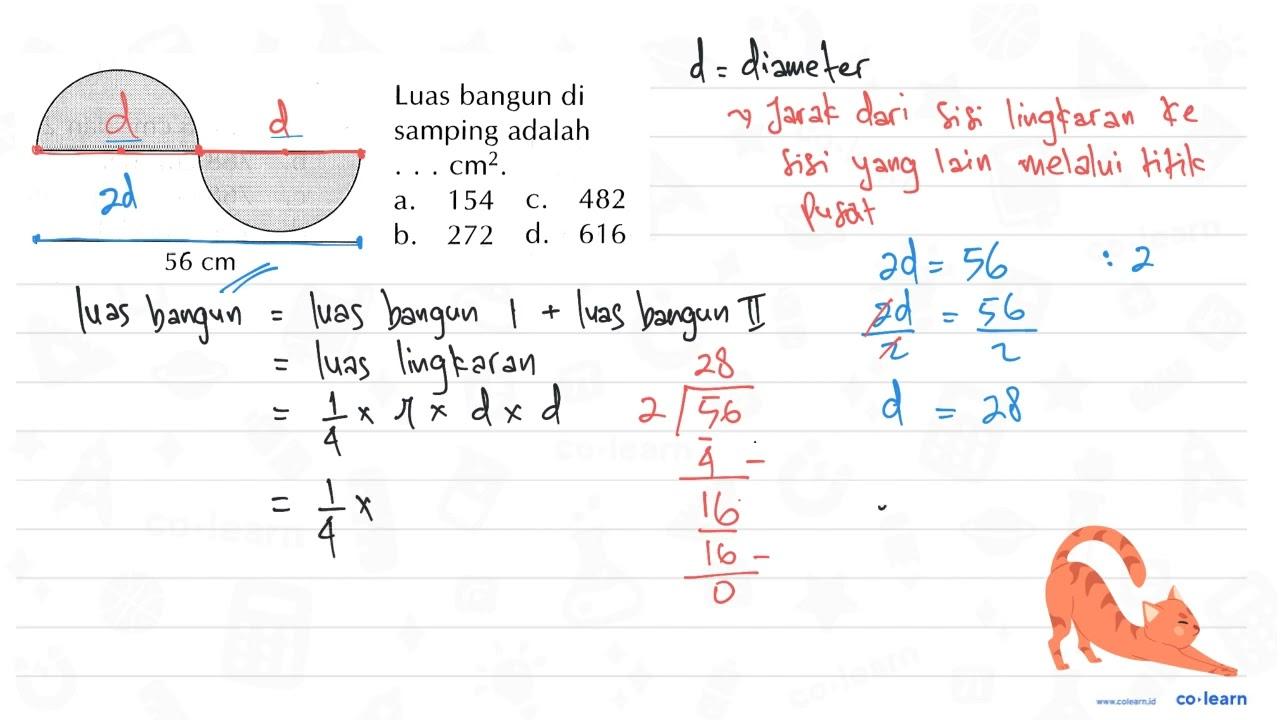 d = diameter
→ Jarak dari sisi lingkaran ke
sisi yang lain melalui titik
pusat
d d
2d
56 cm
Luas bangun di
samping adalah
. . . cm².
a. 154 c. 482
b. 272 d. 616
2d = 56 : 2
2d/2 = 56/2
d = 28
luas bangun = luas bangun I + luas bangun II
= luas lingkaran
= 1/4 x π x d x d
= 1/4 x
28
2 56
4 -
16
16 -
0
www.colearn.id co·learn